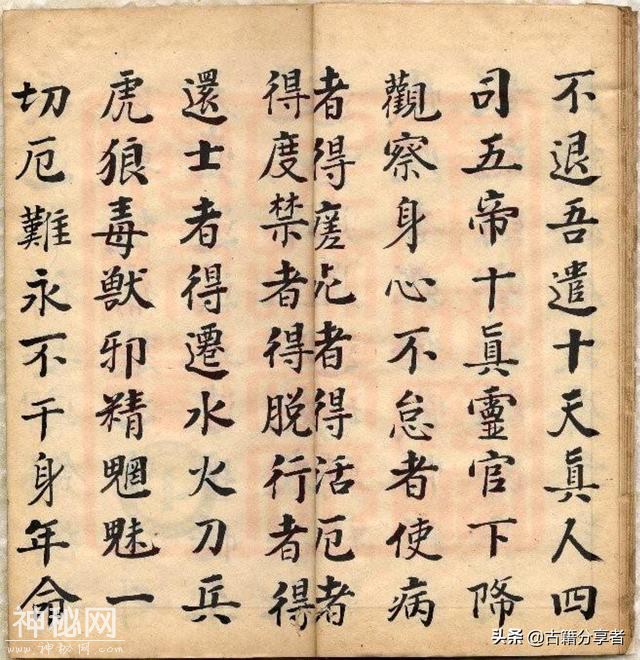 不退吾遣十天眞人四
司五帝十眞靈官下降
觀察身心不怠者使病
者得瘥者得活厄者
得度禁者得脱行者得
還士者得遷水火刀兵
虎狼毒獸邪精魍魅一
切厄難永不干身年命
神秘网
www.神秘网.com
头条 @古籍分享者